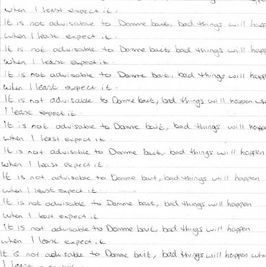 when I least expect it.
It is not advisable to Domme bait, bad things will happ
when I least expect it.
It is not advisable to Domme bait, bad things will happ
when I least expect it.
It is not advisable to Domme bait, bad things will happ
when I least expect it.
It is not advisable to Domme bait, bad things will happen wh
I least expect it.
It is not advisable to Domme bait, bad things will happ
when I least expect it.
It is not advisable to Domme bait, bad things will happen
when I least expect it.
It is not advisable to Domme bait, bad things will happen
when I least expect it.
It is not advisable to Domme bait, bad things will happen
when I least expect it.
It is not advisable to Domme bait, bad things will happen
when I least expect it.
It is not advisable to Domme bait, bad things will happen whe
I least